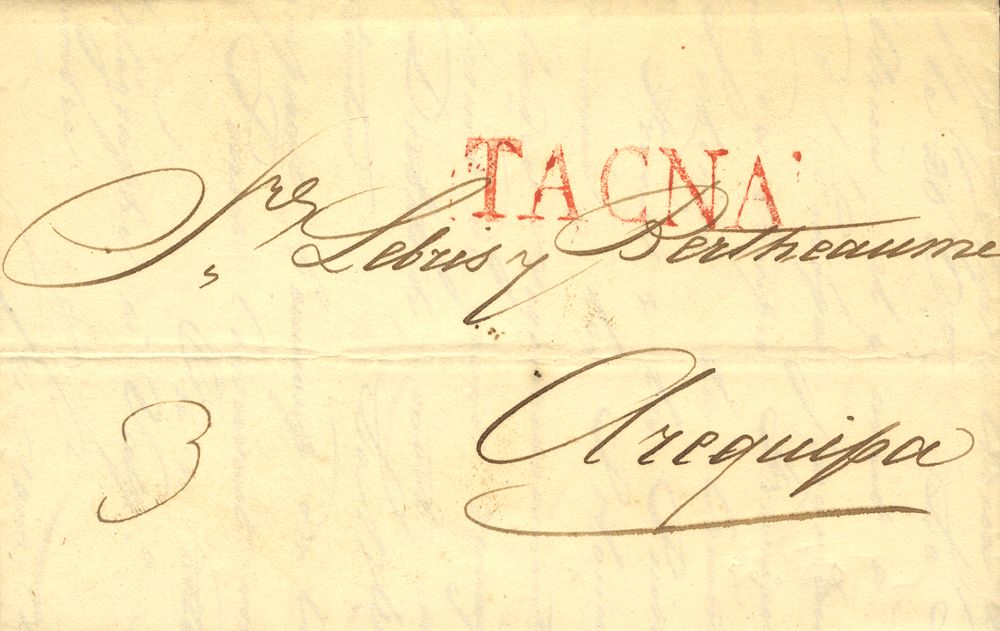 TACNA
Sres Lebris y Bertheaume
Arequipa
3